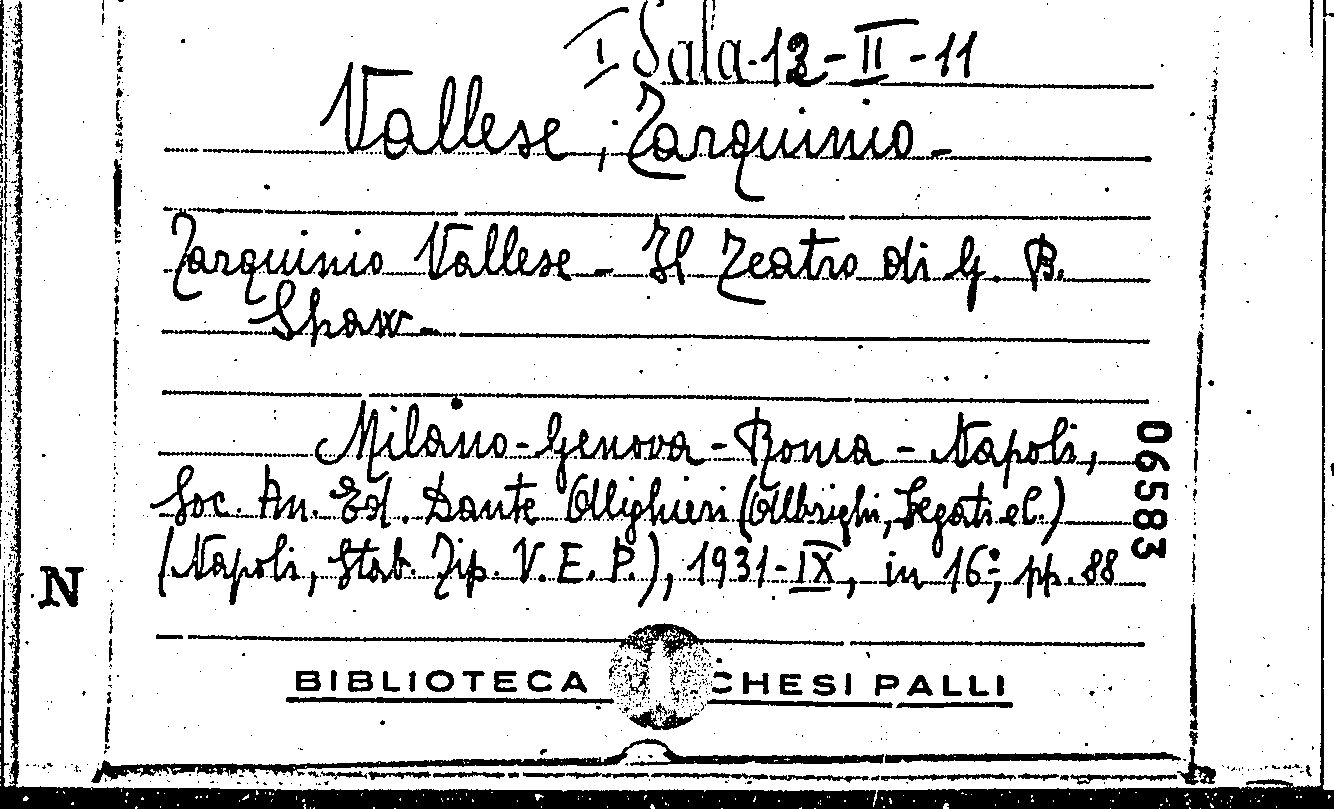 I Sala-12-II-11
Vallese, Tarquinio-
Tarquinio Vallese - Il Teatro di G. B.
Shaw-
Milano-Genova-Roma-Napoli,
Soc. An. Ed. Dante Allighieri (Albrighi, Segati e C.)
(Napoli, Stab. Tip. V. E. P.), 1931-IX, in 16°, pp. 88
06583
N
BIBLIOTECA CHESI PALLI